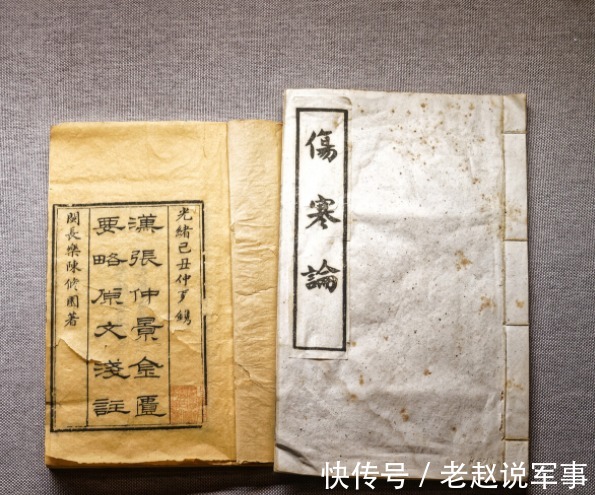 光緒己丑仲
漢張仲景金匱
要略原文淺註
閩長樂陳修園著
傷寒論
快传号 / 老赵说军事